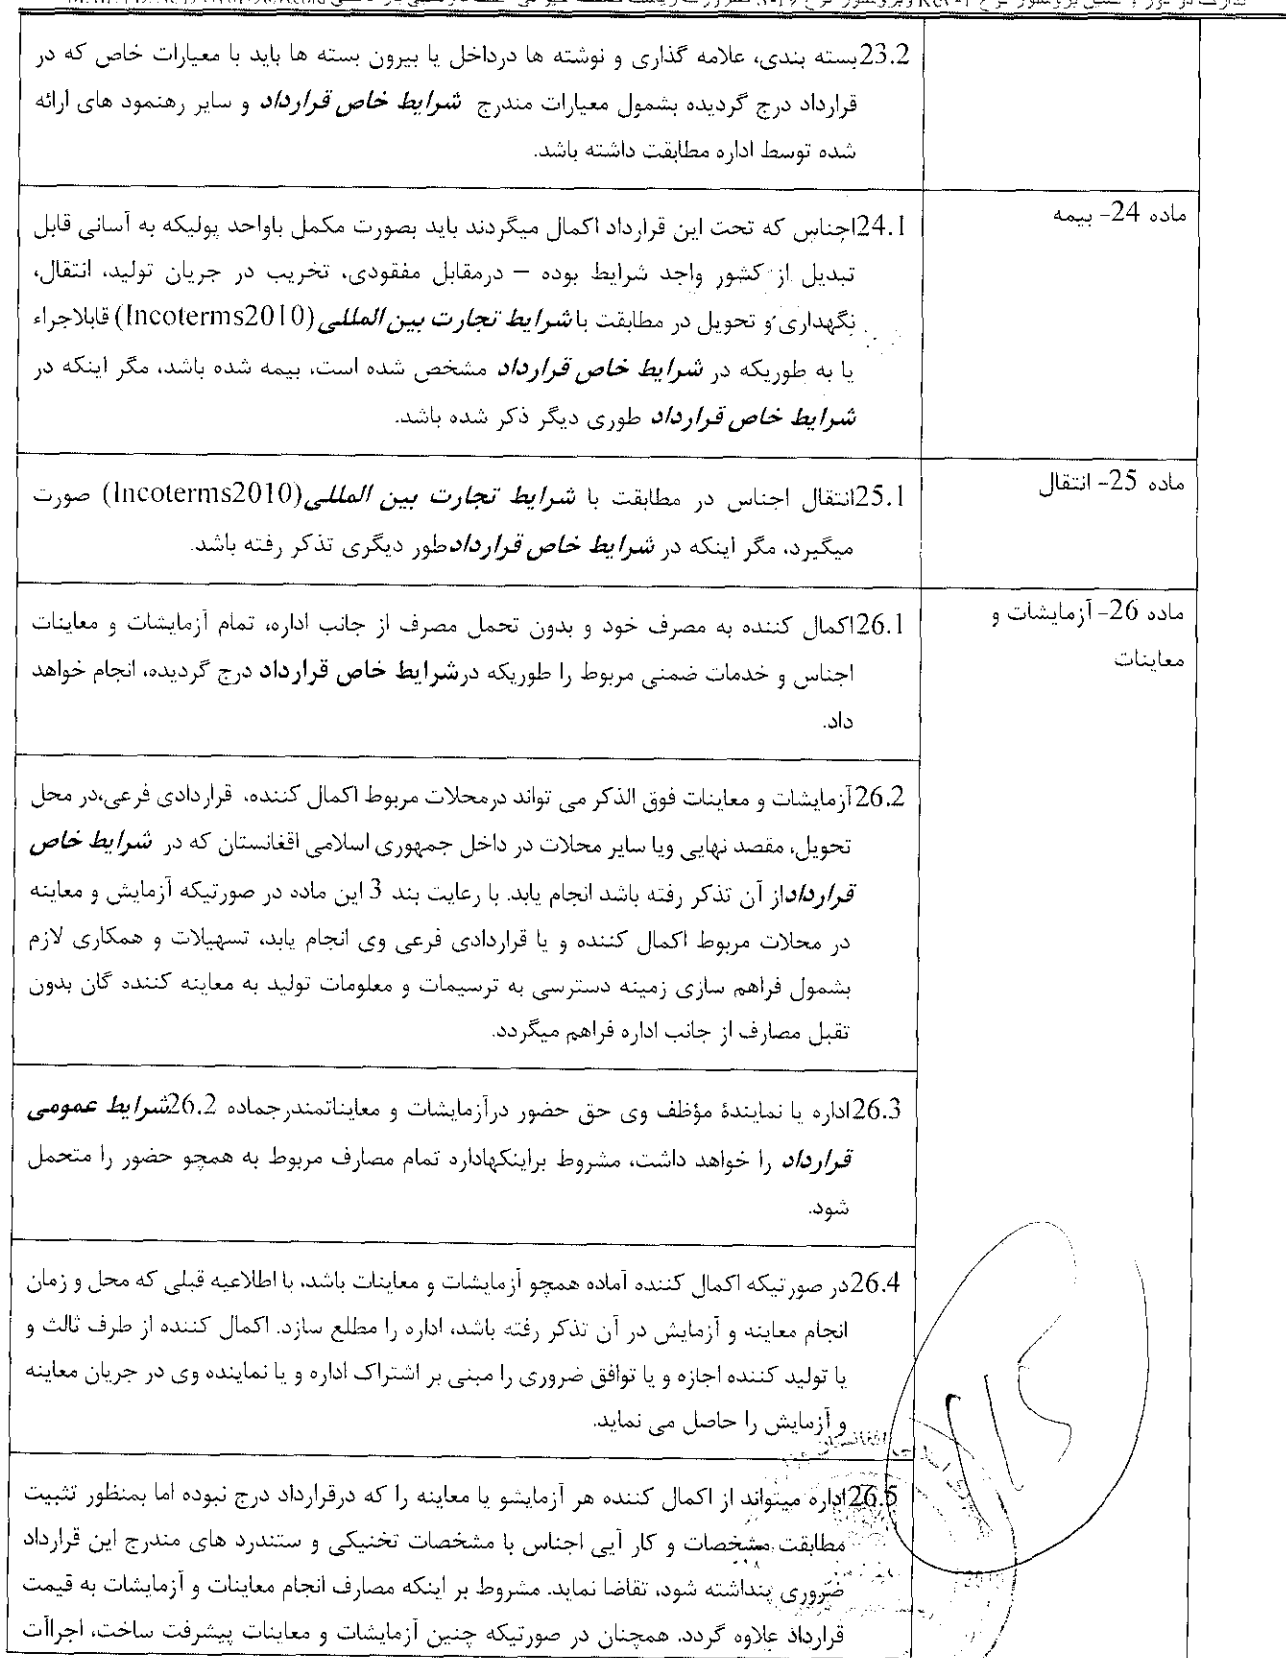 23.2 بسته بندی، علامه گذاری و نوشته ها درداخل یا بیرون بسته ها باید با معیارات خاص که در
قرارداد درج گردیده بشمول معیارات مندرج شرایط خاص قرارداد و سایر رهنمود های ارائه
شده توسط اداره مطابقت داشته باشد.
ماده 24- بیمه
24.1 اجناس که تحت این قرارداد اکمال میگردند باید بصورت مکمل باواحد پولیکه به آسانی قابل
تبدیل از کشور واجد شرایط بوده – درمقابل مفقودی، تخریب در جریان تولید، انتقال،
نگهداری و تحویل در مطابقت با شرایط تجارت بین المللی (Incoterms2010) قابلاجراء
یا به طوریکه در شرایط خاص قرارداد مشخص شده است، بیمه شده باشد، مگر اینکه در
شرایط خاص قرارداد طوری دیگر ذکر شده باشد.
ماده 25- انتقال
25.1 انتقال اجناس در مطابقت با شرایط تجارت بین المللی (Incoterms2010) صورت
میگیرد، مگر اینکه در شرایط خاص قراردادطور دیگری تذکر رفته باشد.
ماده 26- آزمایشات و
معاینات
26.1 اکمال کننده به مصرف خود و بدون تحمل مصرف از جانب اداره، تمام آزمایشات و معاینات
اجناس و خدمات ضمنی مربوط را طوریکه درشرایط خاص قرارداد درج گردیده، انجام خواهد
داد.
26.2 آزمایشات و معاینات فوق الذکر می تواند درمحلات مربوط اکمال کننده، قراردادی فرعی،در محل
تحویل، مقصد نهایی ویا سایر محلات در داخل جمهوری اسلامی افغانستان که در شرایط خاص
قرارداداز آن تذکر رفته باشد انجام یابد. با رعایت بند 3 این ماده در صورتیکه آزمایش و معاینه
در محلات مربوط اکمال کننده و یا قراردادی فرعی وی انجام یابد، تسهیلات و همکاری لازم
بشمول فراهم سازی زمینه دسترسی به ترسیمات و معلومات تولید به معاینه کننده گان بدون
تقبل مصارف از جانب اداره فراهم میگردد.
26.3 اداره یا نمایندۀ مؤظف وی حق حضور درآزمایشات و معایناتمندرجماده 26.2شرایط عمومی
قرارداد را خواهد داشت، مشروط براینکهاداره تمام مصارف مربوط به همچو حضور را متحمل
شود.
26.4 در صورتیکه اکمال کننده آماده همچو آزمایشات و معاینات باشد، با اطلاعیه قبلی که محل و زمان
انجام معاینه و آزمایش در آن تذکر رفته باشد، اداره را مطلع سازد. اکمال کننده از طرف ثالث و
یا تولید کننده اجازه و یا توافق ضروری را مبنی بر اشتراک اداره و یا نماینده وی در جریان معاینه
و آزمایش را حاصل می نماید.
26.5 اداره میتواند از اکمال کننده هر آزمایشو یا معاینه را که درقرارداد درج نبوده اما بمنظور تثبیت
مطابقت مشخصات و کار آیی اجناس با مشخصات تخنیکی و ستندرد های مندرج این قرارداد
ضروری پنداشته شود، تقاضا نماید. مشروط بر اینکه مصارف انجام معاینات و آزمایشات به قیمت
قرارداد علاوه گردد. همچنان در صورتیکه چنین آزمایشات و معاینات پیشرفت ساخت، اجراآت